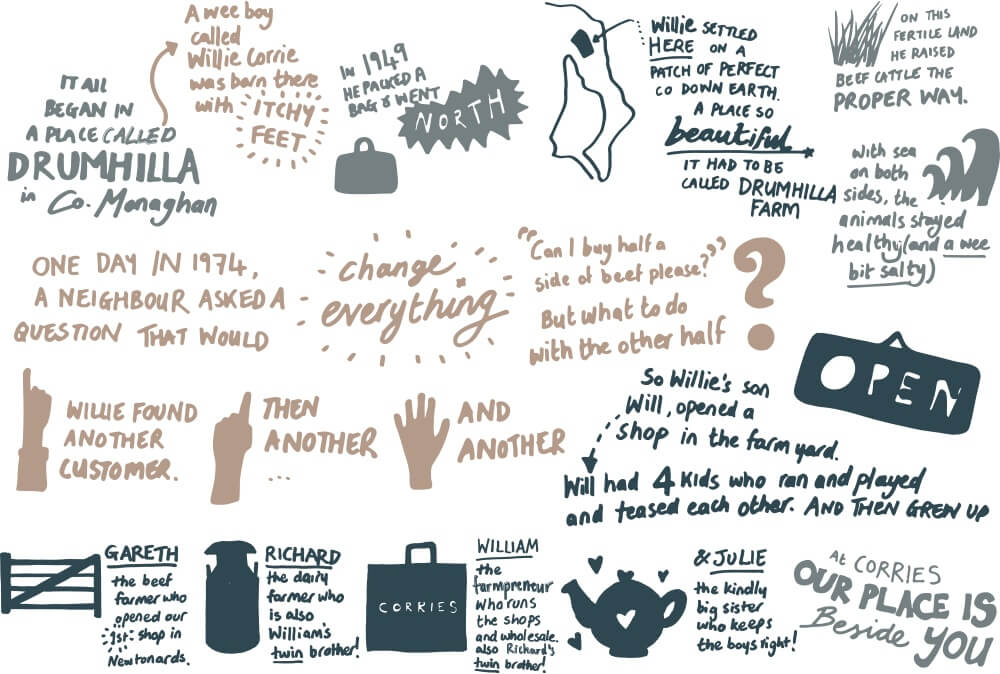 IT ALL
BEGAN IN
A PLACE CALLED
DRUMHILLA
in Co. Monaghan
A wee boy
called
Willie Corrie
was born there
with ITCHY
FEET
IN 1949
HE PACKED A
BAG & WENT
NORTH
Willie SETTLED
HERE ON A
PATCH OF PERFECT
CO DOWN EARTH.
A PLACE SO
beautiful
IT HAD TO BE
CALLED DRUMHILLA
FARM
ON THIS
FERTILE LAND
HE RAISED
BEEF CATTLE THE
PROPER WAY.
With sea
on both
sides, the
animals stayed
healthy (and a wee
bit salty)
ONE DAY IN 1974,
A NEIGHBOUR ASKED A
QUESTION THAT WOULD
change
everything
"Can I buy half a
side of beef please?"
But what to do
with the other half
?
WILLIE FOUND
ANOTHER
CUSTOMER.
THEN
ANOTHER
...
AND
ANOTHER
So Willie's son
Will, opened a
shop in the farm yard.
OPEN
Will had 4 kids who ran and played
and teased each other. AND THEN GREW UP
GARETH
the beef
farmer who
opened our
1st shop in
Newtonards.
RICHARD
the dairy
farmer who
is also
William's
twin brother!
CORRIES
WILLIAM
the
farmpreneur
who runs
the shops
and wholesale.
also Richard's
twin brother!
& JULIE
the kindly
big sister
who keeps
the boys right!
At CORRIES
OUR PLACE IS
Beside YOU